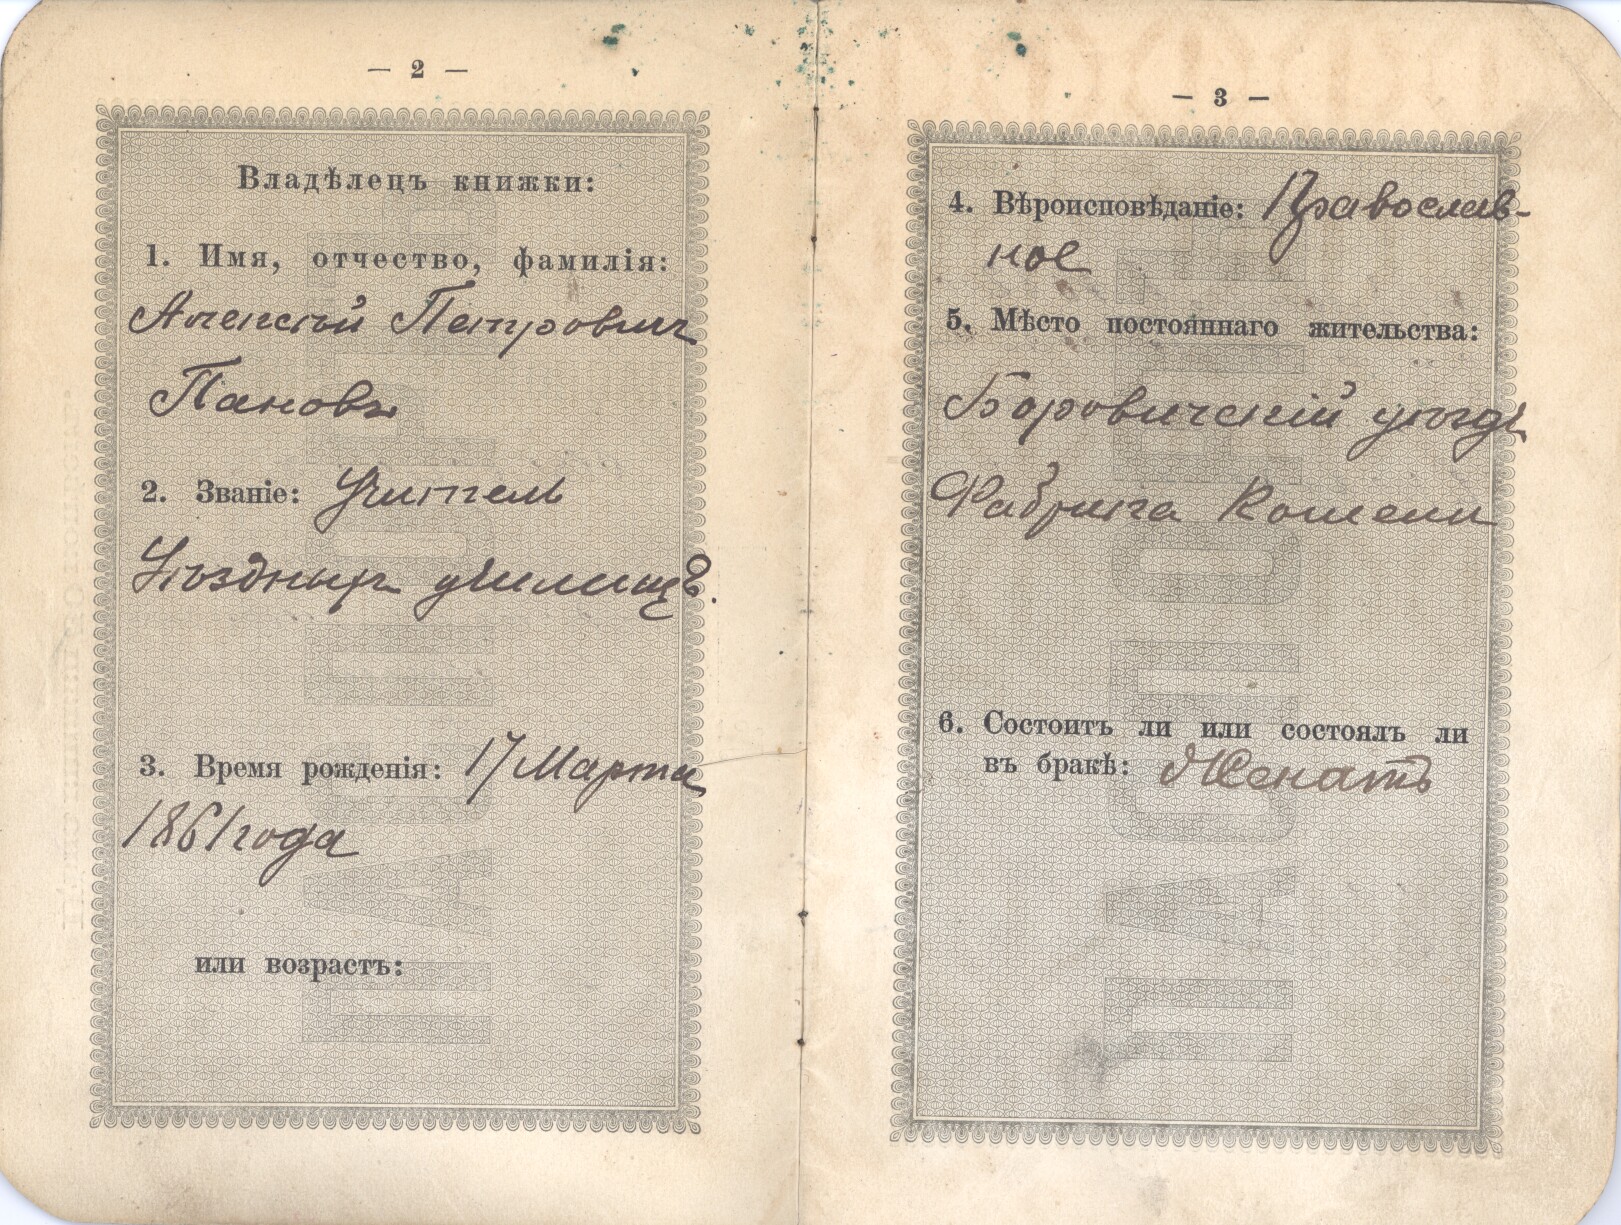 — 2 —
Владѣлецъ книжки:
1. Имя, отчество, фамилія:
Алексѣй Петровичъ
Пановъ
2. Званіе: Учитель
Уѣздныхъ училищъ.
3. Время рожденія: 17 Марта
1861 года
или возрастъ:
— 3 —
4. Вѣроисповѣданіе: Православ-
ное
5. Мѣсто постояннаго жительства:
Боровичскій уѣздъ
Фабрика
6. Состоитъ ли или состоялъ ли
въ бракѣ: Женатъ
ПАСПОРТНАЯ